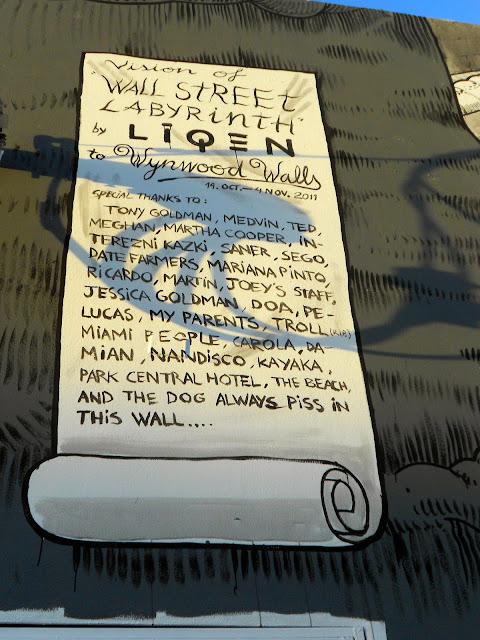 Vision of
"WALL STREET
LABYRINTH"
by LIQEN
to Wynwood Walls
19. OCT. - 4 NOV. 2011
SPECIAL THANKS TO:
TONY GOLDMAN, MEDVIN, TED,
MEGHAN, MARTHA COOPER, IN-
TEREZNI KAZKI, SANER, SEGO,
DATE FARMERS, MARIANA PINTO,
RICARDO, MARTÍN, JOEY'S STAFF,
JESSICA GOLDMAN, DOA, PE-
LUCAS, MY PARENTS, TROLL (RIP)
MIAMI PEOPLE, CAROLA, DA-
MIAN, NANDISCO, KAYAKA,
PARK CENTRAL HOTEL, THE BEACH,
AND THE DOG ALWAYS PISS IN
THIS WALL....